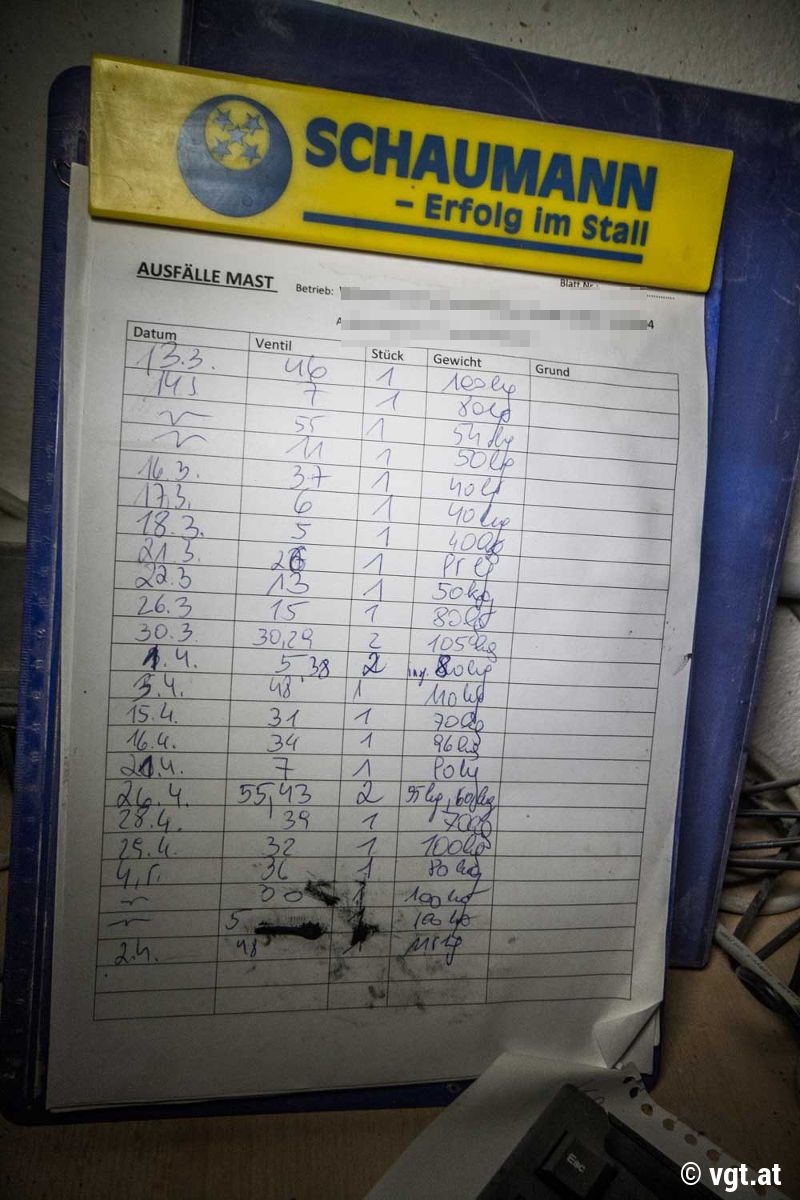 SCHAUMANN
- Erfolg im Stall
AUSFÄLLE MAST Betrieb: Blatt Nr.:
4
Datum Ventil Stück Gewicht Grund
13.3. 46 1 100kg
14.3. 7 1 80kg
55 1 54kg
11 1 50kg
16.3. 37 1 40kg
17.3. 6 1 40kg
18.3. 5 1 40kg
21.3. 26 1
22.3 13 1 50kg
26.3 15 1 80kg
30.3. 30,29 2 105kg
1.4. 5,38 2 80kg
3.4. 48 1 110kg
15.4. 31 1 70kg
16.4. 34 1 96kg
21.4. 7 1
26.4. 55,43 2 55kg, 60kg
28.4. 39 1 70kg
29.4. 32 1 100kg
36 1 80kg
1 100kg
5 1 100kg
2.4. 48 1
Esc
© vgt.at